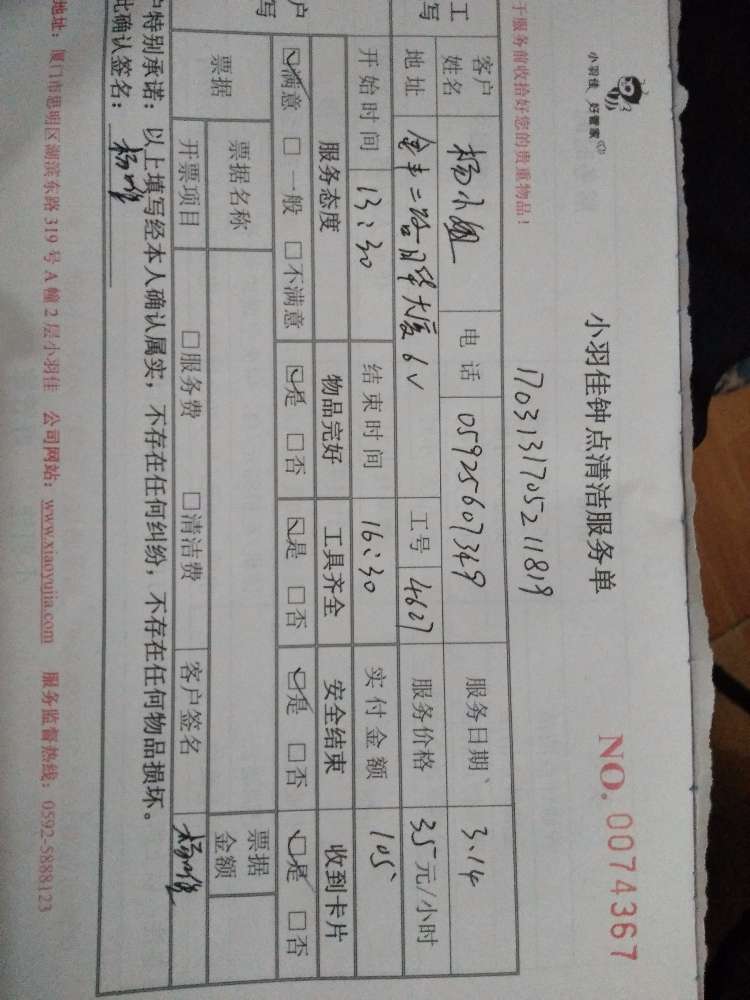 小羽佳 好管家
小羽佳钟点清洁服务单
NO. 0074367
17031317052 11819
于服务前收拾好您的贵重物品!
客户姓名 杨小姐 电话 05925607349 服务日期 3.14
地址 大厦6V 工号 4607 服务价格 35元/小时
开始时间 13:30 结束时间 16:30 实付金额 105
服务态度 物品完好 工具齐全 安全结束 收到卡片
☑满意 □一般 □不满意 ☑是 □否 ☑是 □否 ☑是 □否 ☑是 □否
票据 票据名称 票据金额
开票项目 □服务费 □清洁费 客户签名
户特别承诺:以上填写经本人确认属实,不存在任何纠纷,不存在任何物品损坏。
此确认签名:
地址:厦门市思明区湖滨东路319号A幢2层小羽佳 公司网站:www.xiaoyujia.com 服务监督热线:0592-5888123